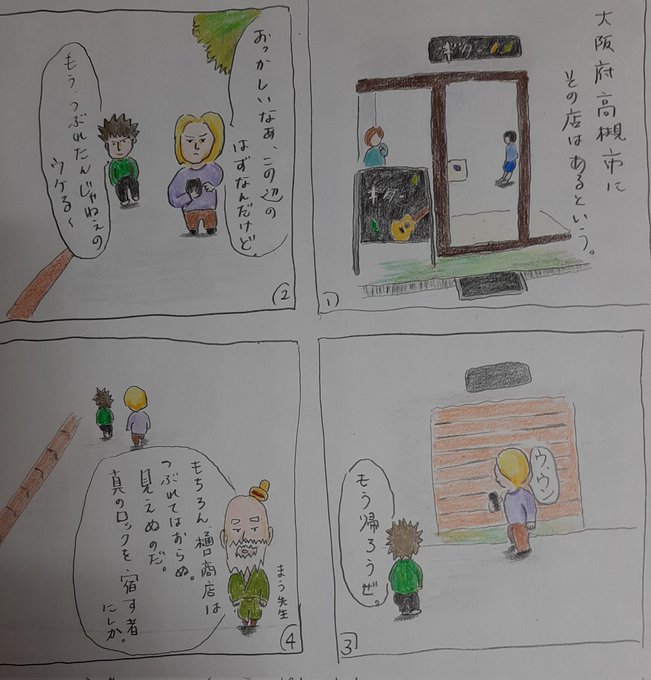 大阪府高槻市に
その店はあるという。
ギター
ギター
①
おっかしいなぁ、この辺の
はずなんだけど。
もう、つぶれたんじゃねぇの
ウケる〜
②
ウウン
もう帰ろうぜ。
③
もちろん、樋口商店は
つぶれてはおらぬ。
見えぬのだ。
真のロックを宿す者
にしか。
まう先生
④